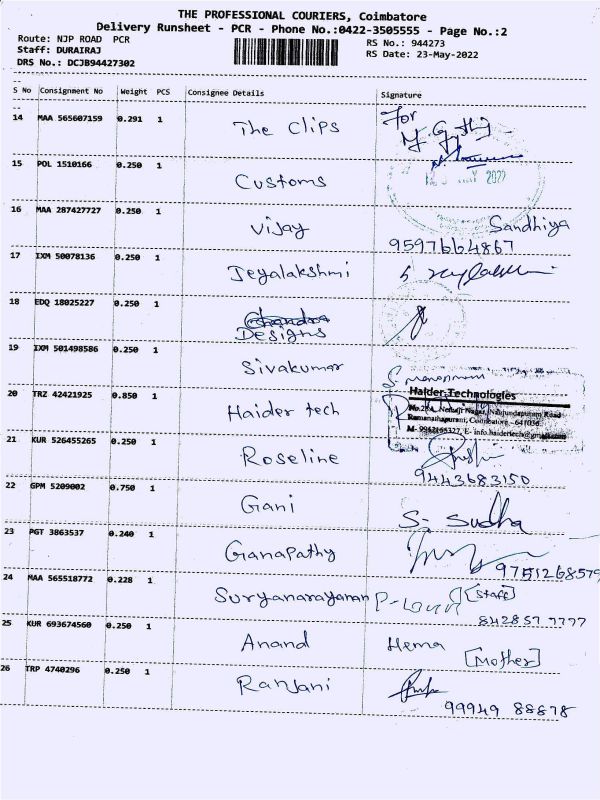 THE PROFESSIONAL COURIERS, Coimbatore
Delivery Runsheet - PCR - Phone No.:0422-3505555 - Page No.:2
Route: NJP ROAD PCR
RS No.: 944273
Staff: DURAIRAJ
RS Date: 23-May-2022
DRS No.: DCJB94427302
S No Consignment No Weight PCS Consignee Details Signature
14 MAA 565607159 0.291 1 The Clips For
15 POL 1510166 0.250 1 Customs
2022
16 MAA 287427727 0.250 1 Vijay Sandhiya
9597664867
17 IXM 50078136 0.250 1 Jeyalakshmi
18 EDQ 18025227 0.250 1 Chandra
Designs
19 IXM 501498586 0.250 1 Sivakumar
20 TRZ 42421925 0.850 1 Haider tech
Haider Technologies
Nehruji Nagar, Nanjundapuram Road
Ramanathapuram, Coimbatore - 641036
E- info.haidertech@gmail.com
21 KUR 526455265 0.250 1 Roseline
9443683150
22 GPM 5209002 0.750 1 Gani S. Sudha
23 PGT 3863537 0.240 1 Ganapathy
9751268579
24 MAA 565518772 0.228 1 Suryanarayanan [Staff]
842857 7777
25 KUR 693674560 0.250 1 Anand Hema
[Mother]
26 TRP 4740296 0.250 1 Ranjani
99949 88878